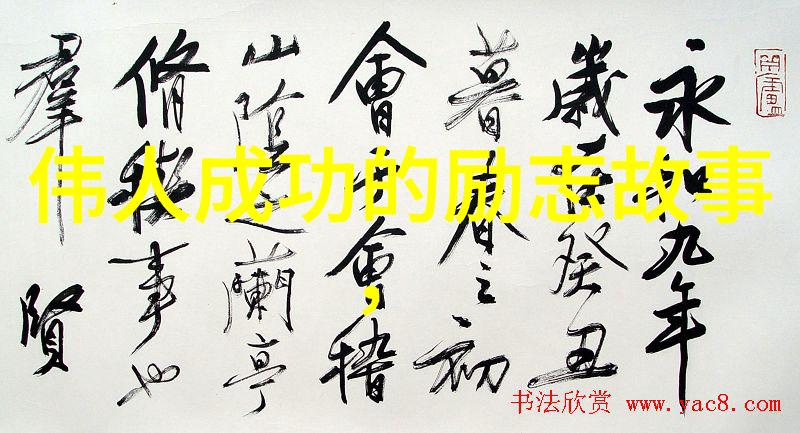 永和九年
歲在癸丑
暮春之初
會于會稽
山陰之蘭亭
脩禊事也
羣賢
伟人成功的励志故事
，
书法欣赏 www.yac8.com